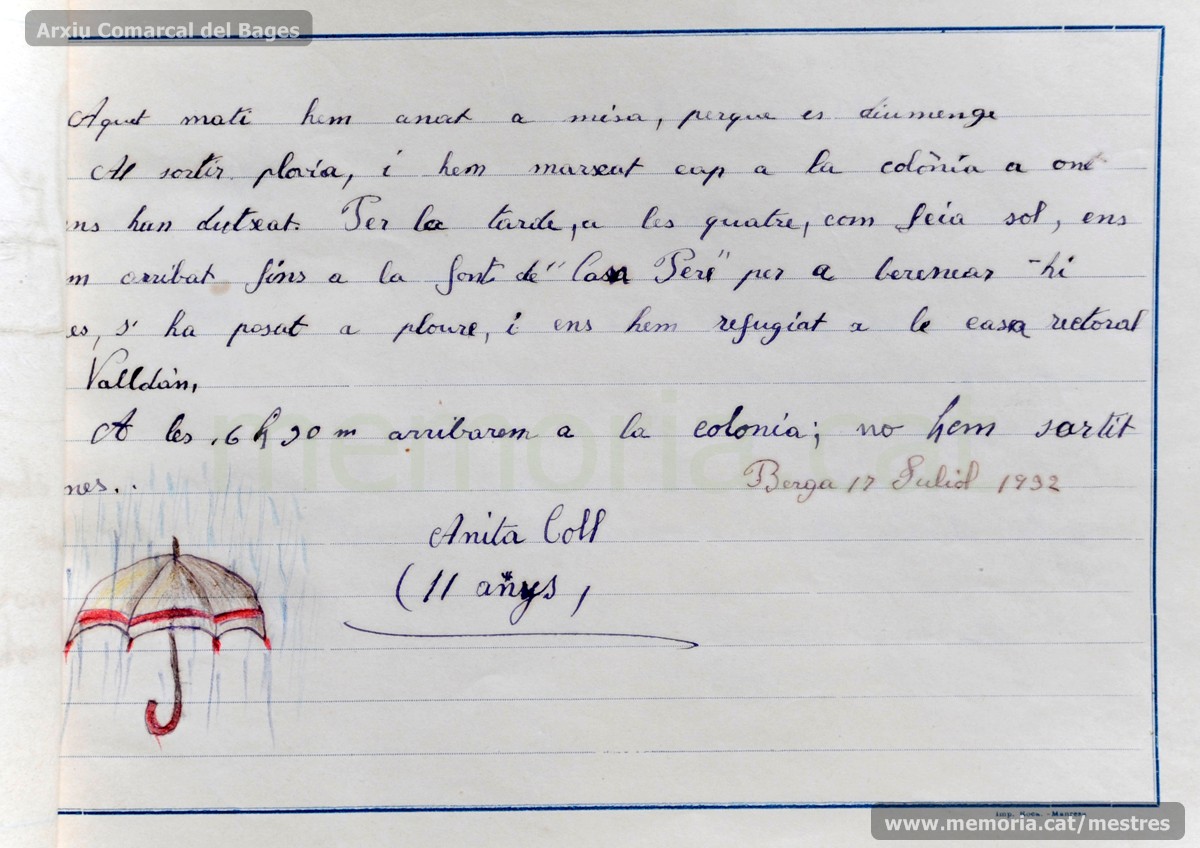 Arxiu Comarcal del Bages
Aquet mati hem anat a misa, perque es diumenge
Al sortir plovia, i hem marxat cap a la colònia a ont
ens han dutxat. Per la tarde, a les quatre, com feia sol, ens
m arribat fins a la font de "Casa Pere" per a berenear-hi
es, s' ha posat a ploure, i ens hem refugiat a le casa rectoral
Valldàn,
A les 6 h 30 m arribarem a la colonia; no hem sortit
mes..
Berga 17 Juliol 1932
Anita Coll
(11 añys,
Imp. Roca. - Manresa
memoria.cat
www.memoria.cat/mestres